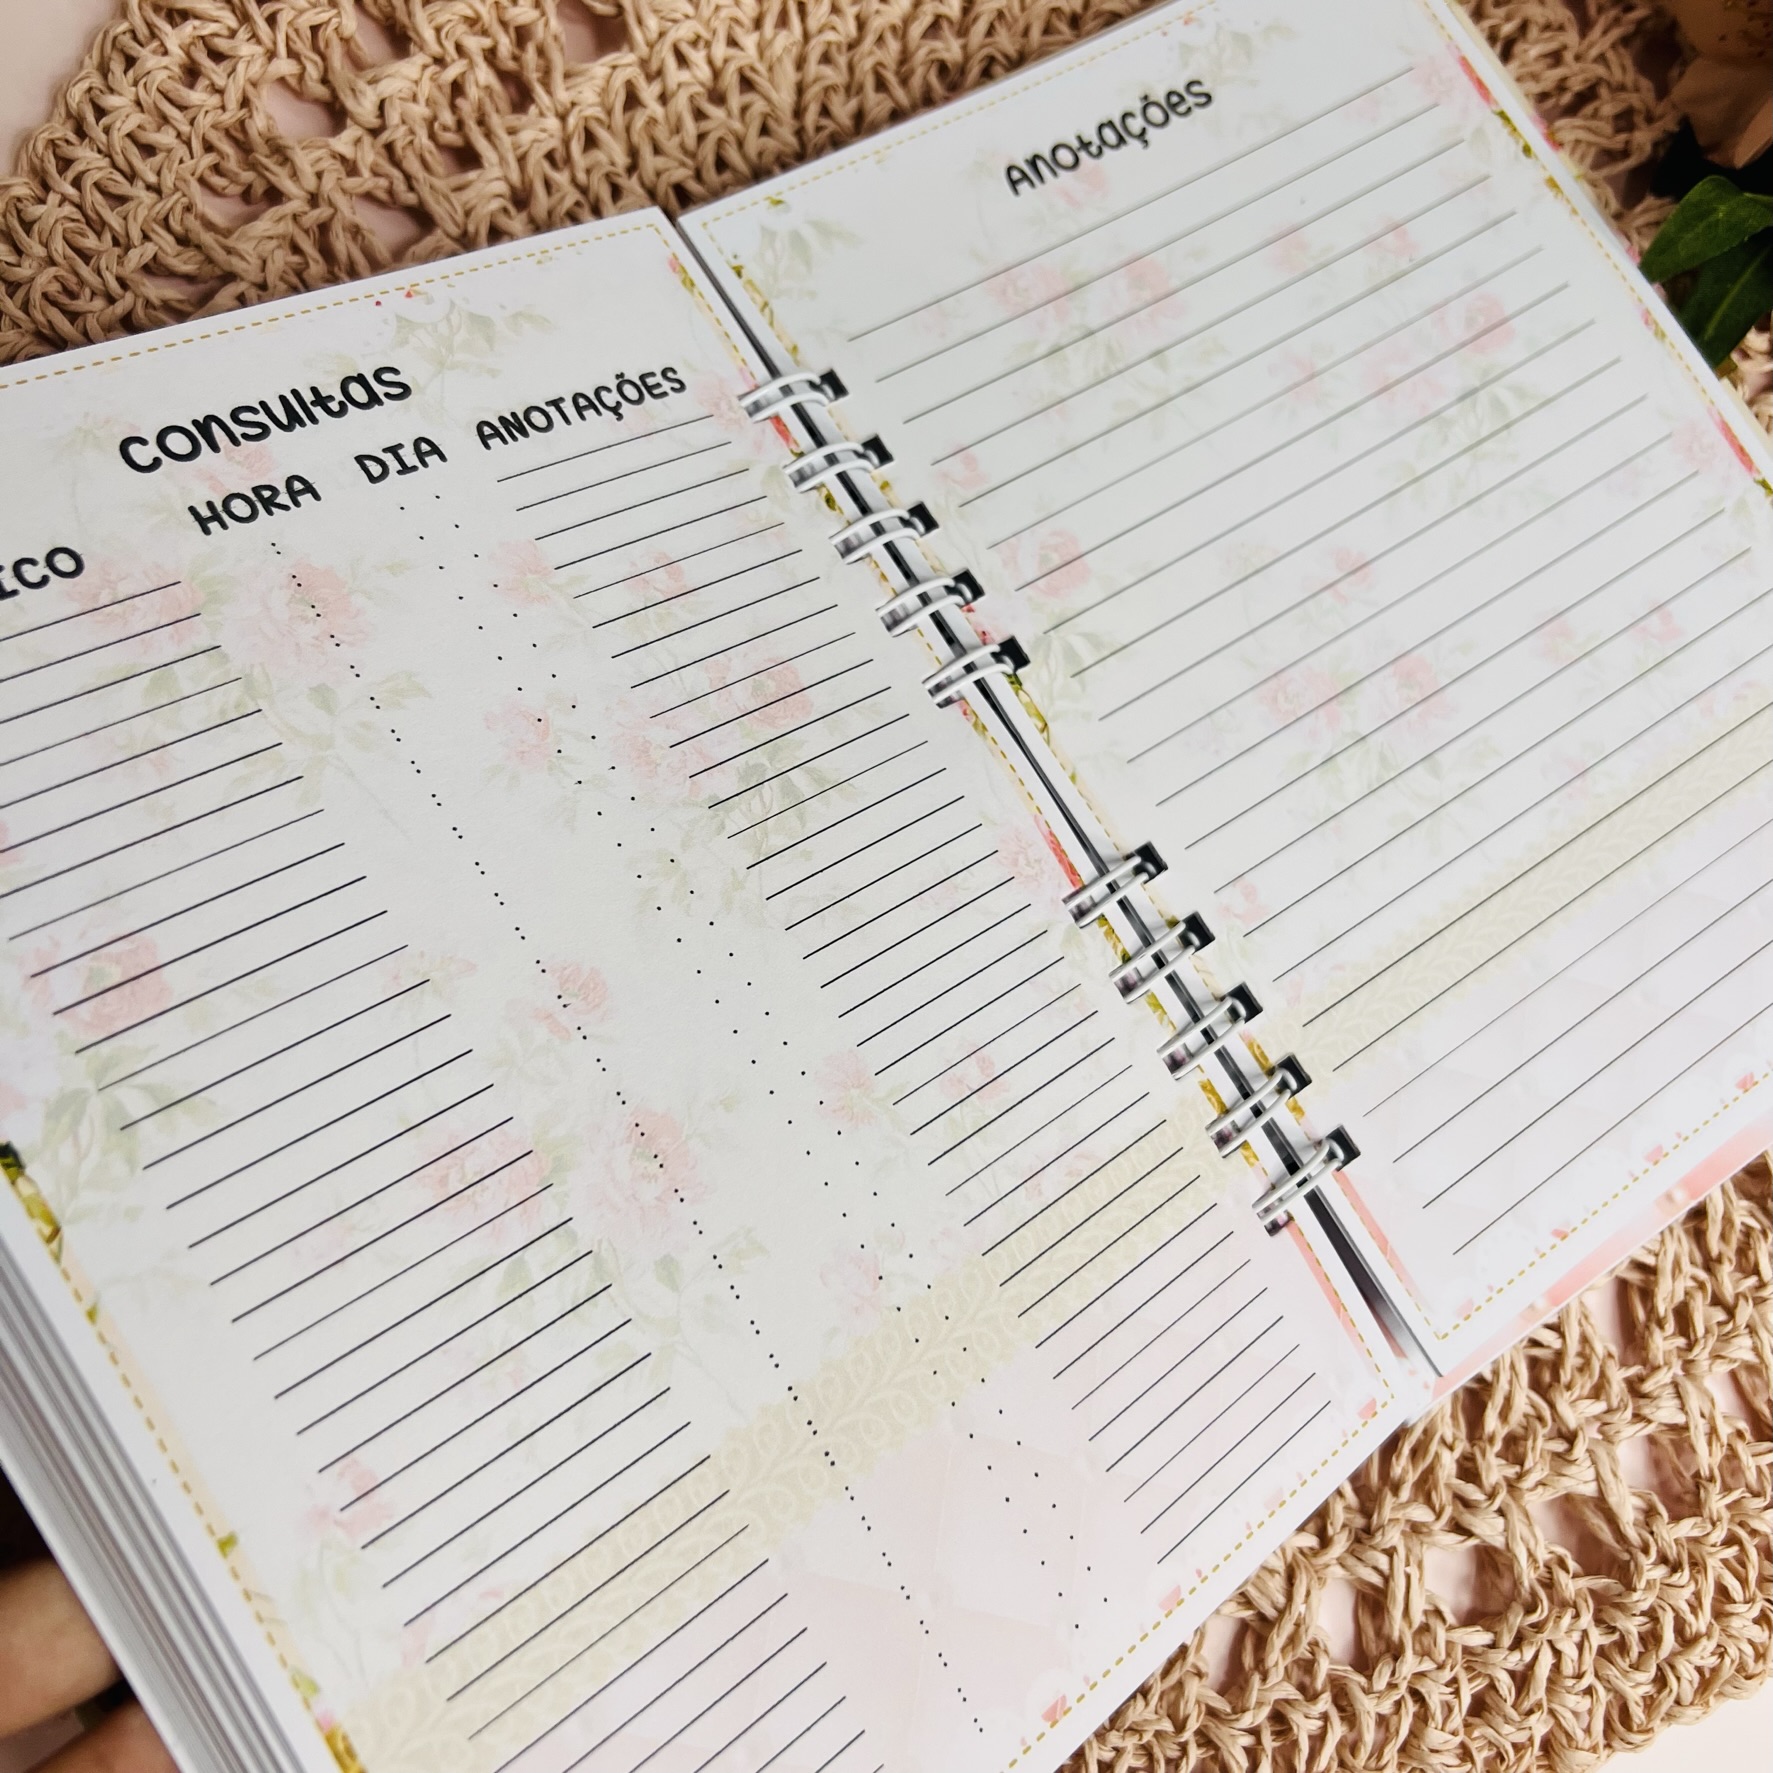 consultas
ICO HORA DIA ANOTAÇÕES
Anotações